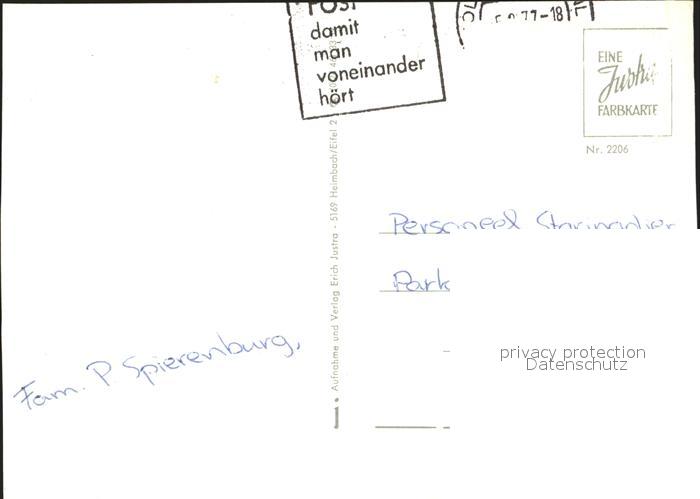 POST
damit
man
voneinander
hört
77-18
EINE
Justra
FARBKARTE
Nr. 2206
Aufnahme und Verlag Erich Justra - 5169 Heimbach/Eifel 2
Personeel
Park
Fam. P. Spierenburg,
privacy protection
Datenschutz